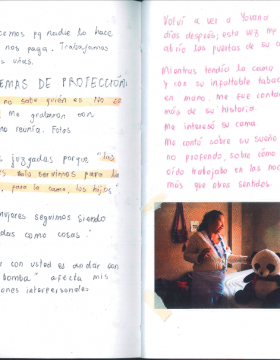 cemos pq nadie lo hace
nos paga. Trabajamos
s viñas.
EMAS DE PROTECCIÓN:
no sabe quién es. No se
Me grabaron con
reunía. Fotos
s juzgadas porque "las
s solo servimos para la
, para la cama, los hijos"
mujeres seguimos siendo
das como cosas."
r con usted es andar con
bomba" afecta mis
iones interpersonales
Volví a ver a Yovana
días después; esta vez me
abrió las puertas de su c
Mientras tendía la cama
y con su infaltable tabac
en mano, me fue contan
más de su historia.
Me interesó su cama.
Me contó sobre su sueño
no profundo, sobre cómo
oído trabajaba en las noc
más que otros sentidos.